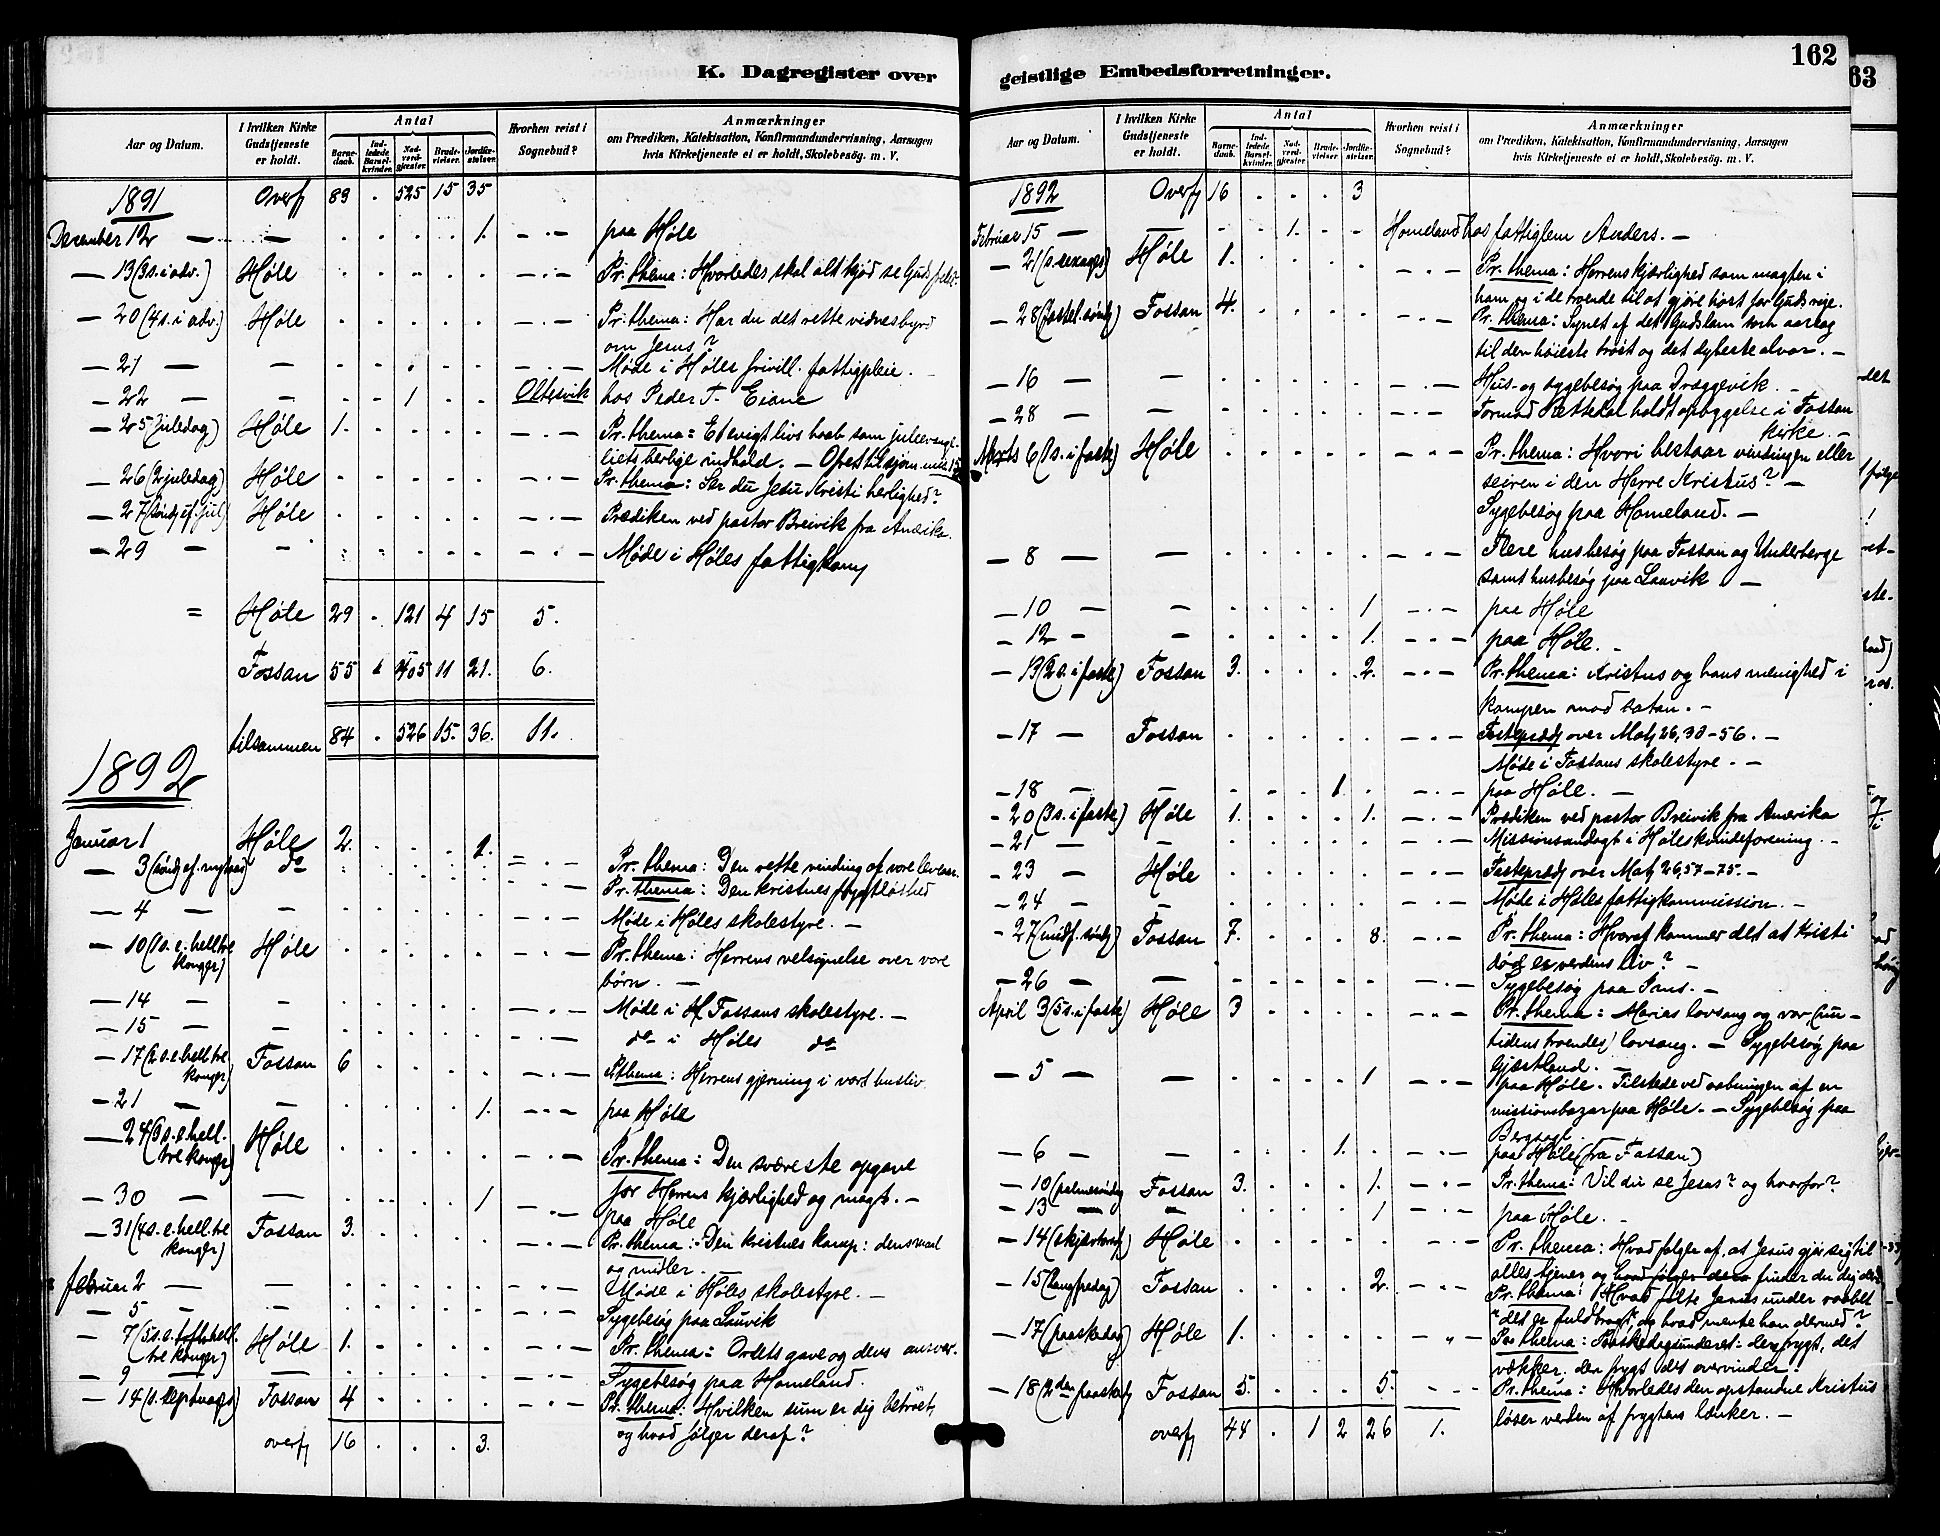 K. Dagregister over
Aar og Datum.
I hvilken Kirke Gudstjeneste er holdt.
Antal
Barnedaab.
Indledede Barselkvinder.
Nadverdgjester.
Brudevielser.
Jordfæstelser.
Hvorhen reist i Sognebud?
Anmærkninger
om Prædiken, Katekisation, Konfirmandundervisning, Aarsagen
hvis Kirketjeneste ei er holdt, Skolebesög. m. V.
1891 Overf 89 . 525 15 35
December 12 — — . . . . 1. — . — paa Høle
— 13 (3 s. i adv.) Høle . . . . . — . — Pr. thema: Hvorledes skal alt kjød se Guds frelse
— 20 (4 s. i adv.) Høle . . . . . — . — Pr. thema: Har du det rette vidnesbyrd
om Jesus?
— 21 — — . . . . . — . — Møde i Høles frivill. fattigpleie.
— 22 — — . . 1 . . Oltesvik hos Peder T. Eiane
— 25 (juledag) Høle 1. . . . . — . — Pr. thema: Et evigt livs haab som juleevange-
liets herlige indhold. — Ofres til sjøm. mis.
— 26 (2 juledag) Høle . . . . . — . — Pr. thema: Ser du Jesu Kristi herlighed?
— 27 (sönd. ef. jul) Høle . . . . . — . — Prædiken ved pastor Breivik fra Amerika.
— 29 — — . . . . . — . — Møde i Høles fattigkom
= Høle 29 . 121 4 15 5.
Fossan 55 . 405 11 21. 6.
tilsammen 84 . 526 15. 36. 11.
1892
Januar 1 Høle 2. . . . 2. — . — Pr. thema: Den rette vending af vore levenn.
— 3 (sönd. ef. nytaar) do . . . . . — . — Pr. thema: Den kristnes frygtløshed
— 4 — — . . . . . — . — Møde i Høles skolestyre. —
— 10 (1 s. e. hell tre konger) Høle . . . . . — . — Pr. thema: Herrens velsignelse over vore
børn. —
— 14 — — . . . . . — . — Møde i H Fossans skolestyre. —
— 15 — — . . . . . — . — do i Høles do
— 17 (2 s. e. hell tre konger) Fossan 6 . . . . — . — Pr thema: Herrens gjerning i vort husliv.
— 21 — — . . . . 1. — . — paa Høle
— 24 (3 s. e. hell. tre konger) Høle . . . . . — . — Pr. thema: Den sværeste opgave
for Herrens kjærlighed og magt. —
— 30 — — . . . . 1 — . — paa Høle
— 31 (4 s. e. hell. tre konger) Fossan 3. . . . . — . — Pr. thema: Den kristnes kamp: dens maal
og midler. —
Februar 2 — — . . . . . — . — Møde i Høles skolestyre. —
— 5 — — . . . . . — . — Sygebesøg paa Lauvik
— 7 (5 s. e. hell. tre konger) Høle 1. . . . . — . — Pr. thema: Ordets gave og dens ansvar.
— 9 — — . . . . . — . — Sygebesøg paa Homeland.
— 14 (s. septuages) Fossan 4 . . . . — . — Pr. thema: Hvilken sum er dig betroet,
og hvad følger deraf?
overf 16 . . . 3.
162
63
geistlige Embedsforretninger.
Aar og Datum.
I hvilken Kirke Gudstjeneste er holdt.
Antal
Barnedaab.
Indledede Barselkvinder.
Nadverdgjester.
Brudevielser.
Jordfæstelser.
Hvorhen reist i Sognebud?
Anmærkninger
om Prædiken, Katekisation, Konfirmandundervisning, Aarsagen
hvis Kirketjeneste ei er holdt, Skolebesög. m. V.
1892 Overf 16 . . . 3
Februar 15 — — . . 1. . . Homeland hos fattiglem Anders. —
— 21 (s. sexages) Høle 1. . . . . — . — Pr. thema: Herrens kjærlighed som magten i
ham og i de troende til at gjøre høst for Guds rige.
— 28 (fastel. sönd) Fossan 4. . . . . — . — Pr. thema: Synet af det Gudslam som aarsag
til den høieste trøst og det dybeste alvor. —
— 16 — — . . . . . — . — Hus- og sygebesøg paa Dræggevik. —
— 28 — — . . . . . — . — Formand Rettedal holdt opbyggelse i Fossan
kirke. —
Marts 6 (1 s. i faste) Høle . . . . . — . — Pr. thema: Hvori bestaar vindingen eller
seiren i den Herre Kristus? —
Sygebesøg paa Homeland. —
— 8 — — . . . . . — . — Flere husbesøg paa Fossan og Underberge
samt husbesøg paa Lauvik —
— 10 — — . . . . 1 — . — paa Høle
— 12 — — . . . . 1. — . — paa Høle. —
— 13 (2 s. i faste) Fossan 3. . . . 2. — . — Pr. thema: Kristus og hans menighed i
kampen mod satan. —
— 17 Fossan . . . . . — . — Fastepræd over Mat 26,30-56. —
Møde i Fossans skolestyre. —
— 18 — — . . . 1 . — . — paa Høle. —
— 20 (3 s. i faste) Høle 1. . . . 1. — . — Prædiken ved pastor Breivik fra Amerika
— 21 — — . . . . . — . — Missionsandagt i Høles kvindeforening. —
— 23 — Høle . . . . . — . — Fastepræd over Mat 26,57-75. —
— 24 — — . . . . . — . — Møde i Høles fattigkommission. —
— 27 (midf. sönd) Fossan 7. . . . 8. — . — Pr. thema: Hvoraf kommer det at Kristi
død er verdens liv? —
— 26 — — . . . . . — . — Sygebesøg paa Ims. —
April 3 (5 s. i faste) Høle 3 . . . . — . — Pr. thema: Marias lovsang og vor (nu-
tidens troendes) lovsang. — Sygebesøg paa
Gjestland. —
— 5 — — . . . . 1 — . — paa Høle. Tilstede ved aabningen af en
missionsbazar paa Høle. — Sygebesøg paa
Bergsagl.
— 6 — — . . . 1. . — . — paa Høle (fra Fossan)
— 10 (palmesöndag Fossan 3. . . . 1. — . — Pr. thema: Vil du se Jesus? og hvorfor?
— 13 — — . . . . 1 — . — paa Høle. —
— 14 (skjærtorsd) Høle . . . . . — . — Pr. thema: Hvad følger af, at Jesus gjør sig til
alles tjener, og hvad følger deraf finder du dig deri
— 15 (langfredag) Fossan . . . . 2. — . — Pr. thema: Hvad følte Jesus under raabet
"det er fuldbragt", og hvad mente han dermed?
— 17 (paaskedag) Høle 1. . . . . " — Pr. thema: Paaskedagsunderet: den frygt, det
vækker, den frygt det overvinder.
— 18 (2den paaskd) Fossan 5. . . . 5. — — Pr. thema: Hvorledes den opstandne Kristus
løser verden af frygtens lænker. —
overf 44 . 1 2 26 1.